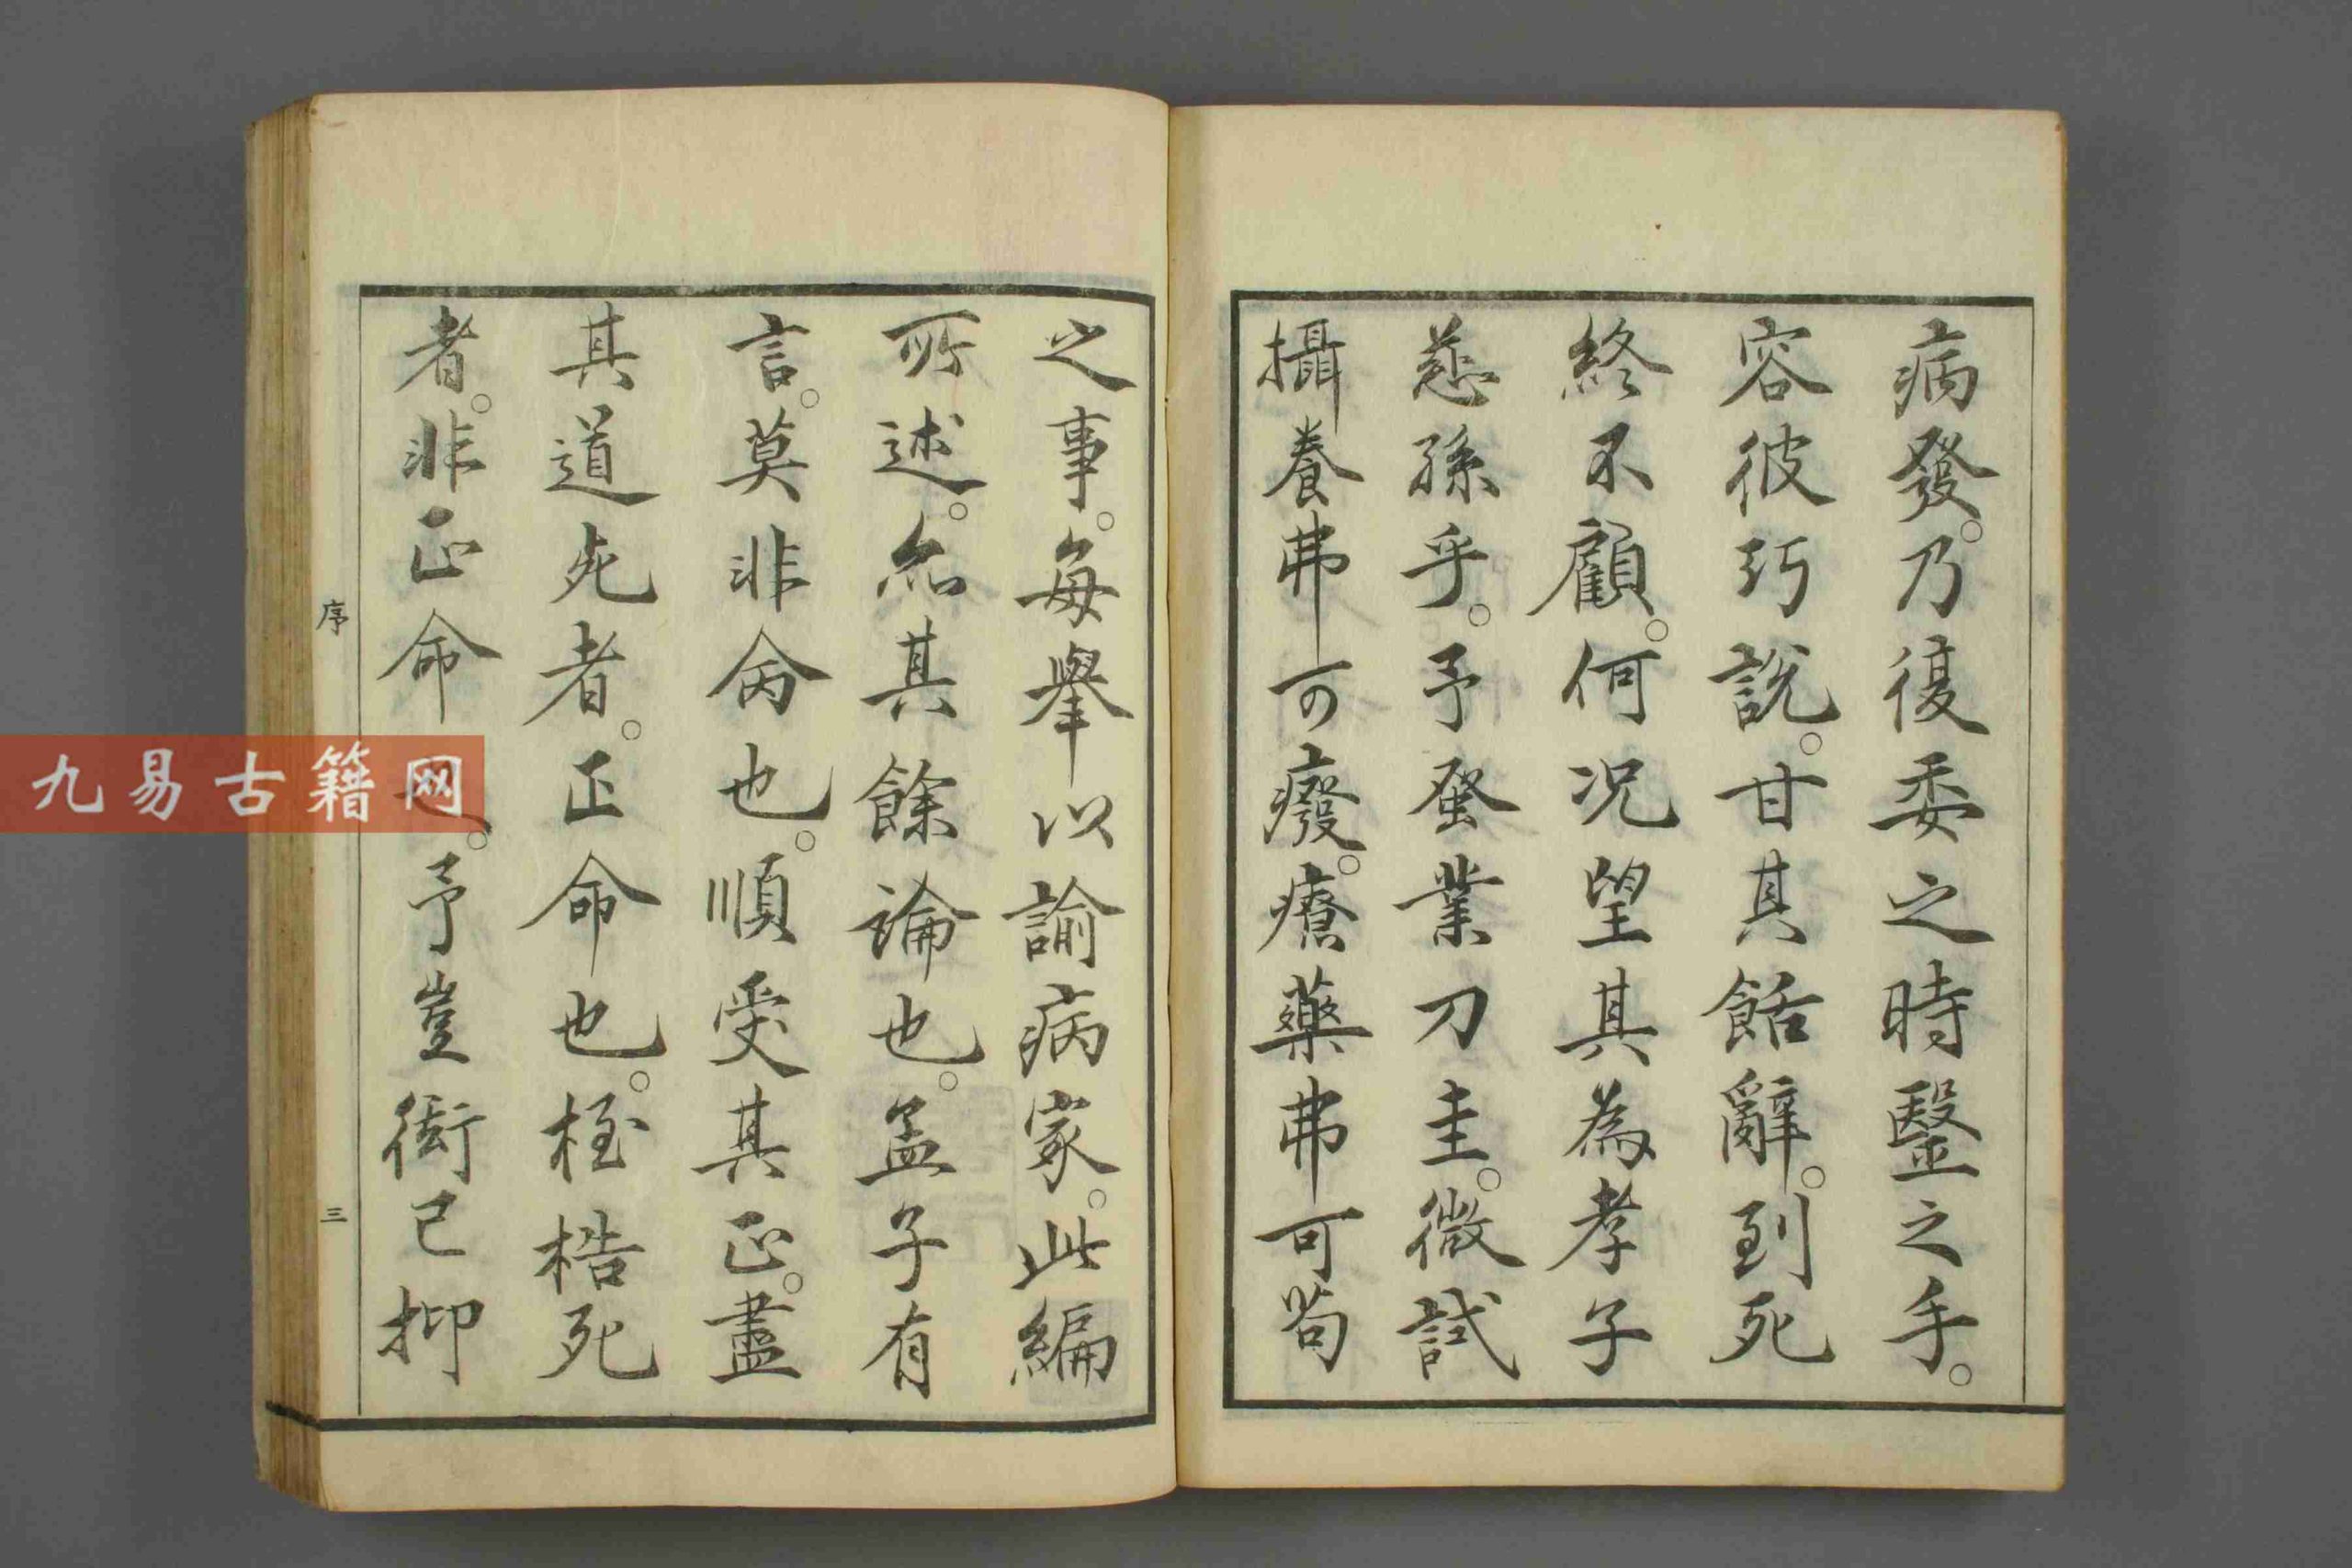 病發。乃復委之時醫之手。
容彼巧說。甘其餂辭。到死
終不顧。何况望其為孝子
慈孫乎。予發業刀圭。微試
攝養弗可癈。療藥弗可苟
之事。每舉以諭病家。此編
所述。尒其餘論也。孟子有
言。莫非命也。順受其正。盡
其道死者。正命也。桎梏死
者。非正命也。予豈衒己抑
序
三
九易古籍网